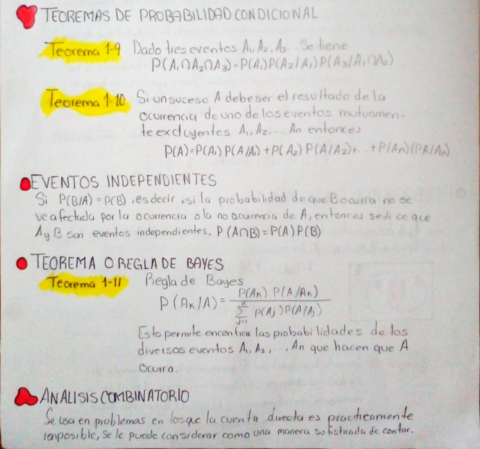 TEOREMAS DE PROBABILIDAD CONDICIONAL
Teorema 1-9 Dado tres eventos A₁, A₂, A₃. Se tiene
P(A₁∩A₂∩A₃)=P(A₁)P(A₂/A₁)P(A₃/A₁∩A₂)
Teorema 1-10 Si un suceso A debe ser el resultado de la
ocurencia de uno de los eventos mutuamen-
te excluyentes A₁, A₂, ... An entonces
P(A)=P(A₁)P(A/A₁)+P(A₂)P(A/A₂)+...+P(An)(PA/An)
EVENTOS INDEPENDIENTES
Si P(B/A)=P(B), es decir, si la probabilidad de que B ocurra no se
ve afectada por la ocurencia o la no ocurrencia de A, entonces se dice que
A y B son eventos independientes, P(A∩B)=P(A)P(B)
TEOREMA O REGLA DE BAYES
Teorema 1-11 Regla de Bayes
P(Aₖ/A)= P(Aₖ) P(A/Aₖ) / Σⁿⱼ₌₁ P(Aⱼ)P(A/Aⱼ)
Esto permite encontrar las probabilidades de los
diversos eventos A₁, A₂, ..., An que hacen que A
ocurra.
ANALISIS COMBINATORIO
Se usa en problemas en los que la cuenta directa es practicamente
imposible, se le puede considerar como una manera sofisticada de contar.